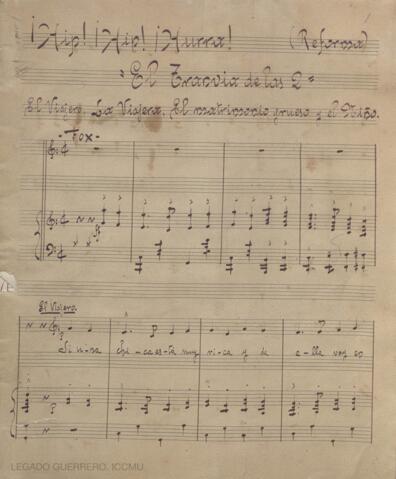 ¡Hip! ¡Hip! ¡Hurra! (Reforma)
"El Tranvia de las 2"
El Viajero, La Viajera, El matrimonio grueso y el Niño.
- Fox -
El Viajero.
Si u-na chi-ca es-ta muy ri-ca y de e-lla voy en
LEGADO GUERRERO. ICCMU